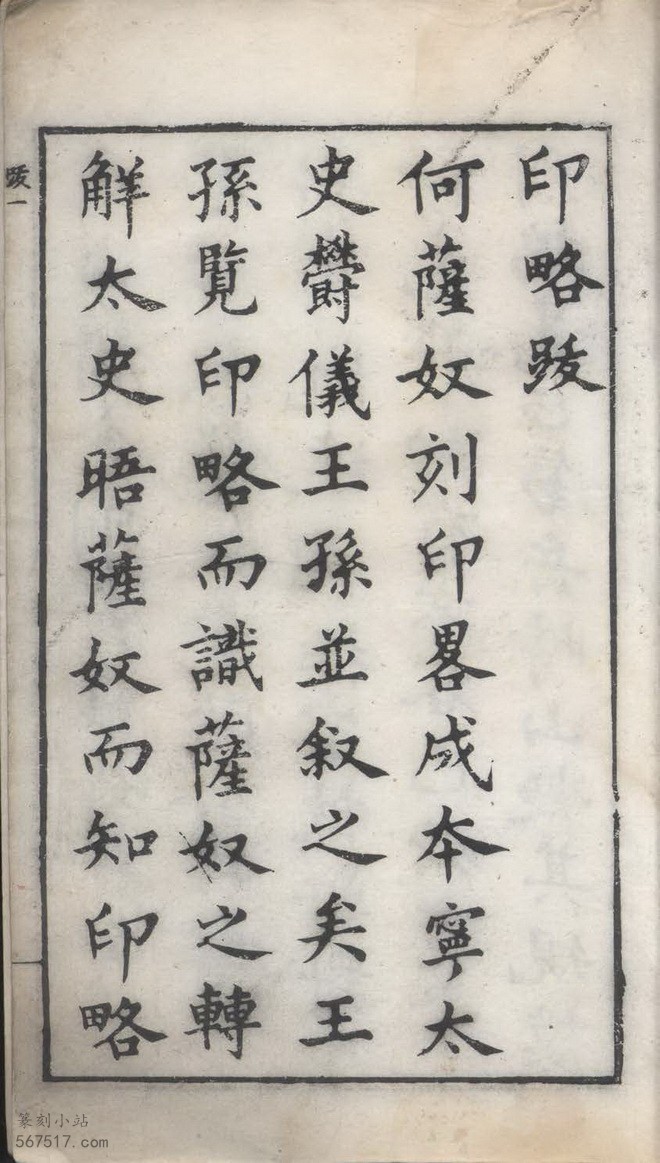 印略跋
何薩奴刻印畧成本寧太
史欎儀王孫並叙之矣王
孫覧印略而識薩奴之轉
觧太史晤薩奴而知印略
跋一
篆刻小站
567517.com